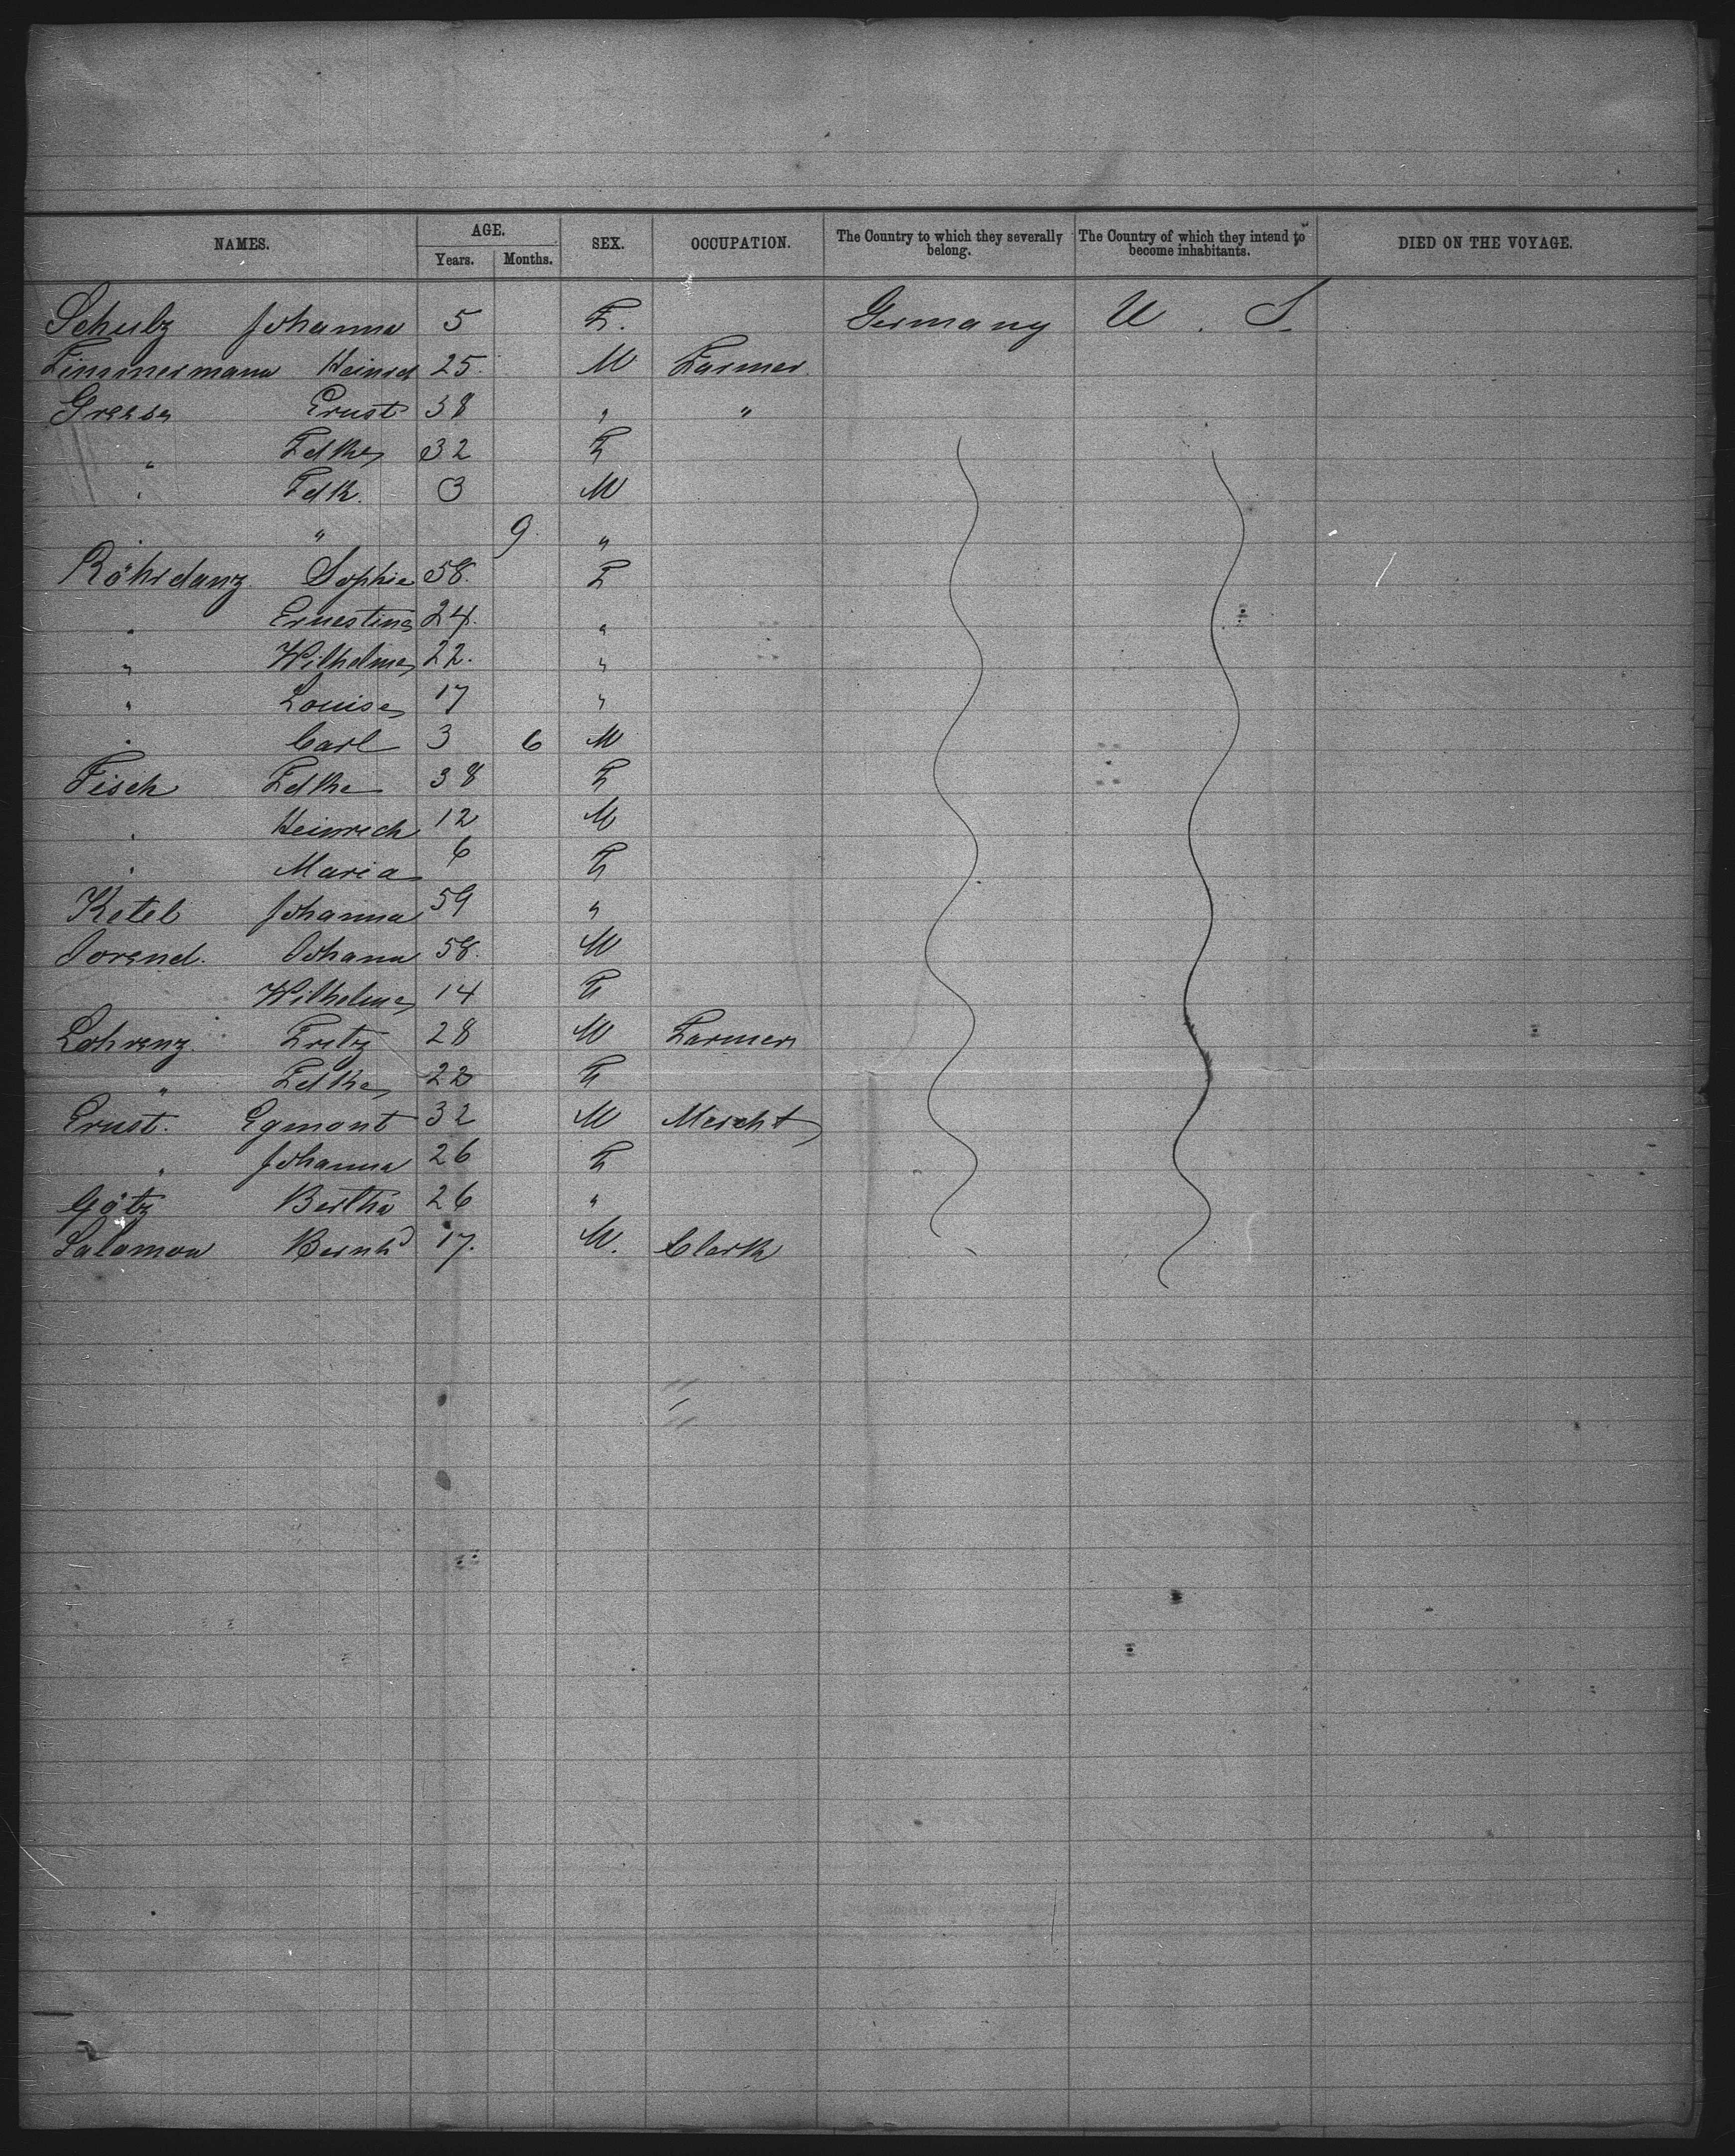 NAMES. AGE. Years. Months. SEX. OCCUPATION. The Country to which they severally belong. The Country of which they intend to become inhabitants. DIED ON THE VOYAGE.
Schulz Johanna 5 F. Germany U. S.
Zimmermann Heinrch 25. M Farmer
Grasse Ernst 38 " "
" Fdke 32 F
" Fdk. 3 M
" " 9. "
Röhrdanz Sophie 58. F
" Ernestine 24. "
" Wilhelme 22. "
" Louise 17 "
" Carl 3 6 M
Fisch Fdke 38 F
" Heinrich 12 M
" Maria 6 F
Ketel Johanna 59 "
Johann 58. M
Wilhelme 14 F
Lohrenz Fritz 28 M Farmer
" Fdke 22 F
Ernst. Egmont 32 M Mercht
" Johanna 26 F
Götz Bertha 26 "
Salamon Bernhd 17. M. Clerk